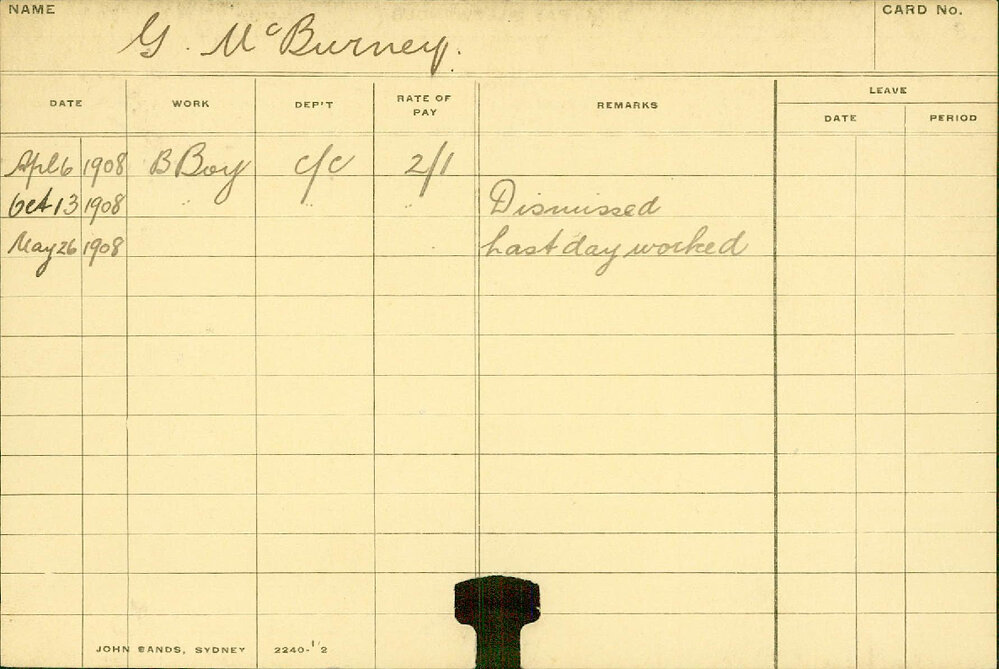 NAME G. McBurney. CARD No.
DATE WORK DEP'T RATE OF PAY REMARKS LEAVE
DATE PERIOD
Apl 6 1908 B Boy c/c 2/1
Oct 13 1908 Dismissed
May 26 1908 Last day worked
JOHN SANDS, SYDNEY 2240-1/2